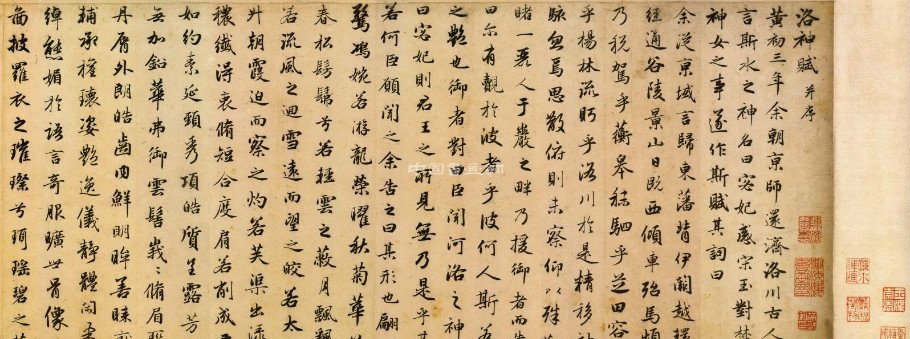 洛神賦 并序
黄初三年余朝京師還濟洛川古人
言斯水之神名曰宓妃感宋玉對楚
神女之事遂作斯賦其詞曰
余從京域言歸東藩背伊闕越轘
經通谷陵景山日既西傾車殆馬煩
乃稅駕乎蘅皋秣駟乎芝田容
乎楊林流眄乎洛川於是精移神
駭忽焉思散俯則未察仰以殊
睹一麗人于巖之畔乃援御者而告
曰爾有覿於彼者乎彼何人斯若
之艷也御者對曰臣聞河洛之神
曰宓妃則君王之所見無乃是乎其
若何臣願聞之余告之曰其形也翩
驚鴻婉若游龍榮曜秋菊華
春松髣髴兮若輕雲之蔽月飄飄
若流風之迴雪遠而望之皎若太
升朝霞迫而察之灼若芙渠出淥
穠纖得衷脩短合度肩若削成
如約素延頸秀項皓質呈露芳
無加鉛華弗御雲髻峩〻脩眉
丹脣外朗皓齒內鮮明眸善睞
輔承權瓌姿艷逸儀靜體閑柔
綽態媚於語言奇服曠世骨像
啚披羅衣之璀璨兮珥瑤碧之